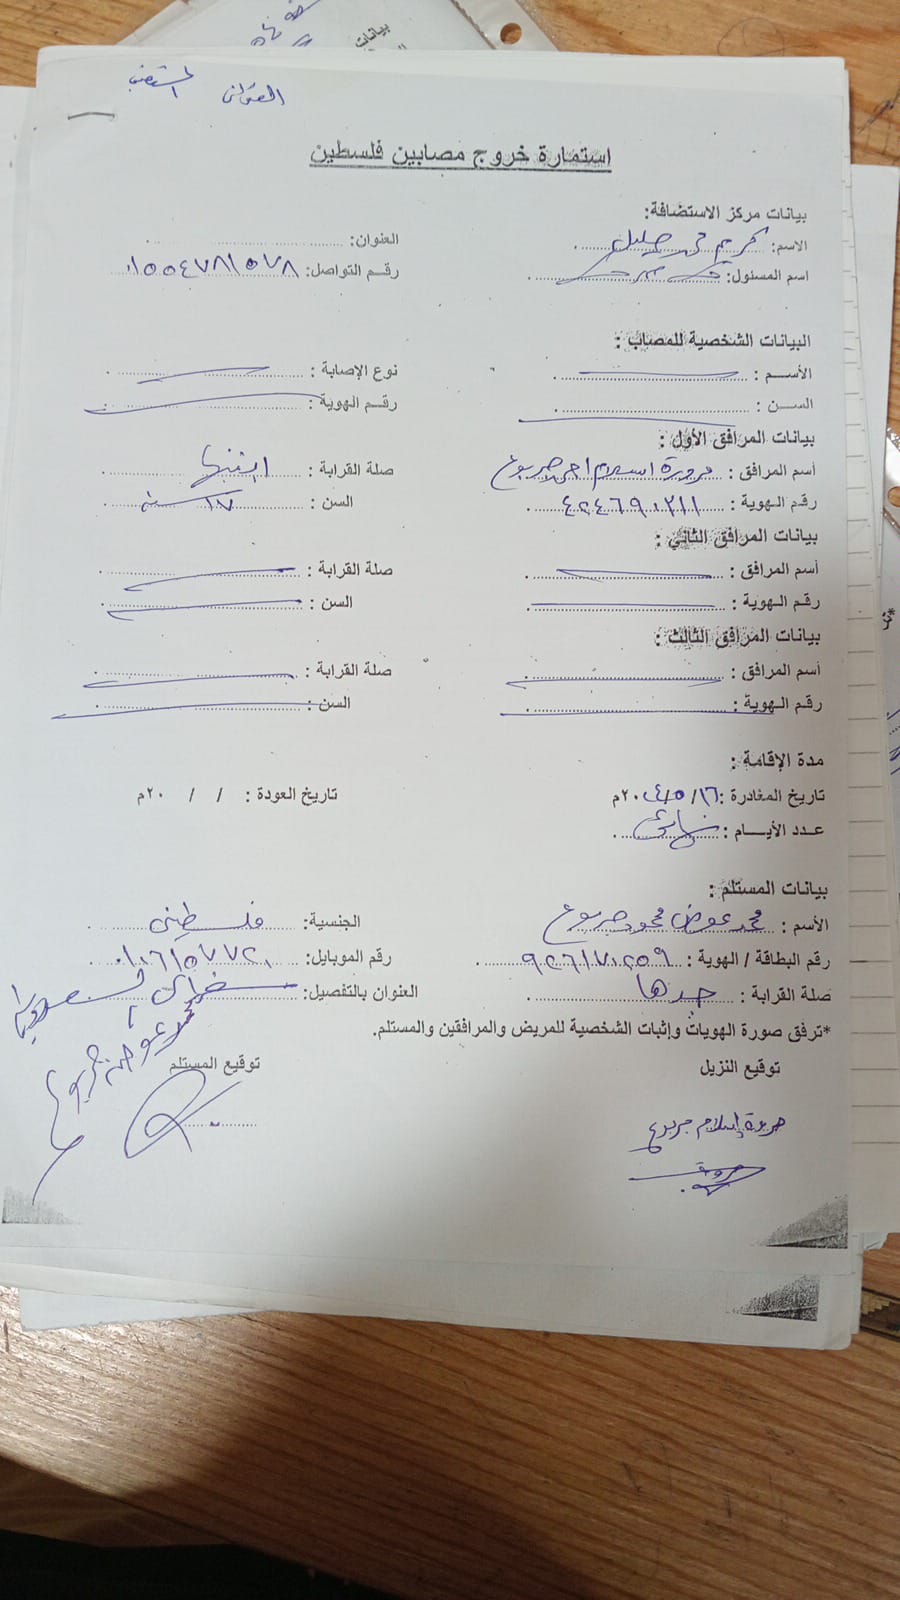 بيانات
استمارة خروج مصابين فلسطين
بيانات مركز الاستضافة:
الاسم: كريم محمد العنوان:
اسم المسئول: رقم التواصل: ٠١٥٥٤٧٨١٥٧٨
البيانات الشخصية للمصاب :
الأســم : نوع الإصابة :
الســن : رقم الهوية :
بيانات المرافق الأول :
أسم المرافق : مروة اسلام احمد جربوع صلة القرابة : ابنتها
رقم الهوية : ٤٢٤٦٩٠٢١١ السن : ١٧ سنة
بيانات المرافق الثاني :
أسم المرافق : صلة القرابة :
رقم الهوية : السن :
بيانات المرافق الثالث :
أسم المرافق : صلة القرابة :
رقم الهوية : السن :
مدة الإقامة :
تاريخ المغادرة : ١٦/ ٥/ ٢٠٢٤م تاريخ العودة : / / ٢٠م
عدد الأيــام : نهائي
بيانات المستلم :
الأسم : محمد عوض محمود جربوع الجنسية: فلسطيني
رقم البطاقة / الهوية : ٩٢٦١٧٠٢٥٩ رقم الموبايل: ٠١٠٦١٥٧٧٢٠
صلة القرابة : جدها العنوان بالتفصيل:
*ترفق صورة الهويات وإثبات الشخصية للمريض والمرافقين والمستلم.
توقيع النزيل توقيع المستلم
مروة إسلام جربوع
محمد عوض جربوع